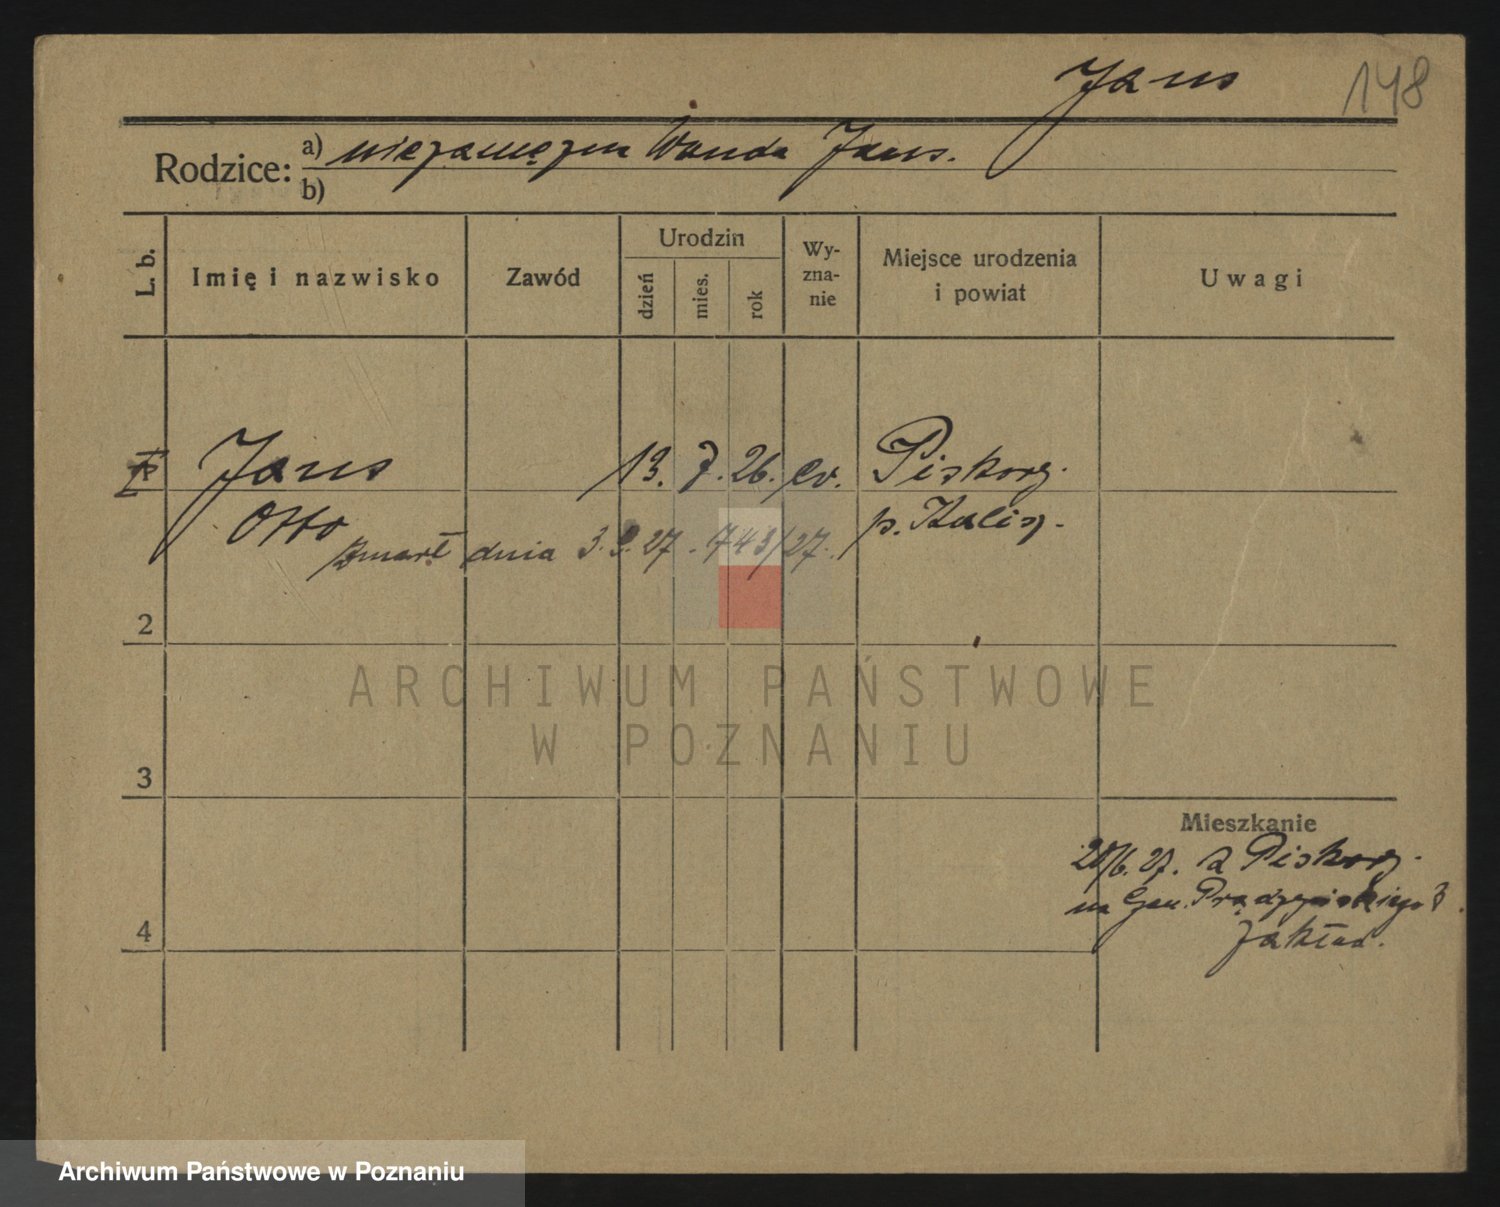 Jans 148
Rodzice: a) niezamężna Wanda Jans.
b)
L. b. Imię i nazwisko Zawód Urodzin dzień mies. rok Wy-zna-nie Miejsce urodzenia i powiat Uwagi
Jans 13. 7. 26. ev. Piskory.
Otto p. Kalisz.
zmarł dnia 3. 9. 27. 743/27.
2
ARCHIWUM PAŃSTWOWE
W POZNANIU
3
Mieszkanie
20/6. 27. z Piskory.
na Gen. Prądzyńskiego 3.
4
Zakład.
Archiwum Państwowe w Poznaniu